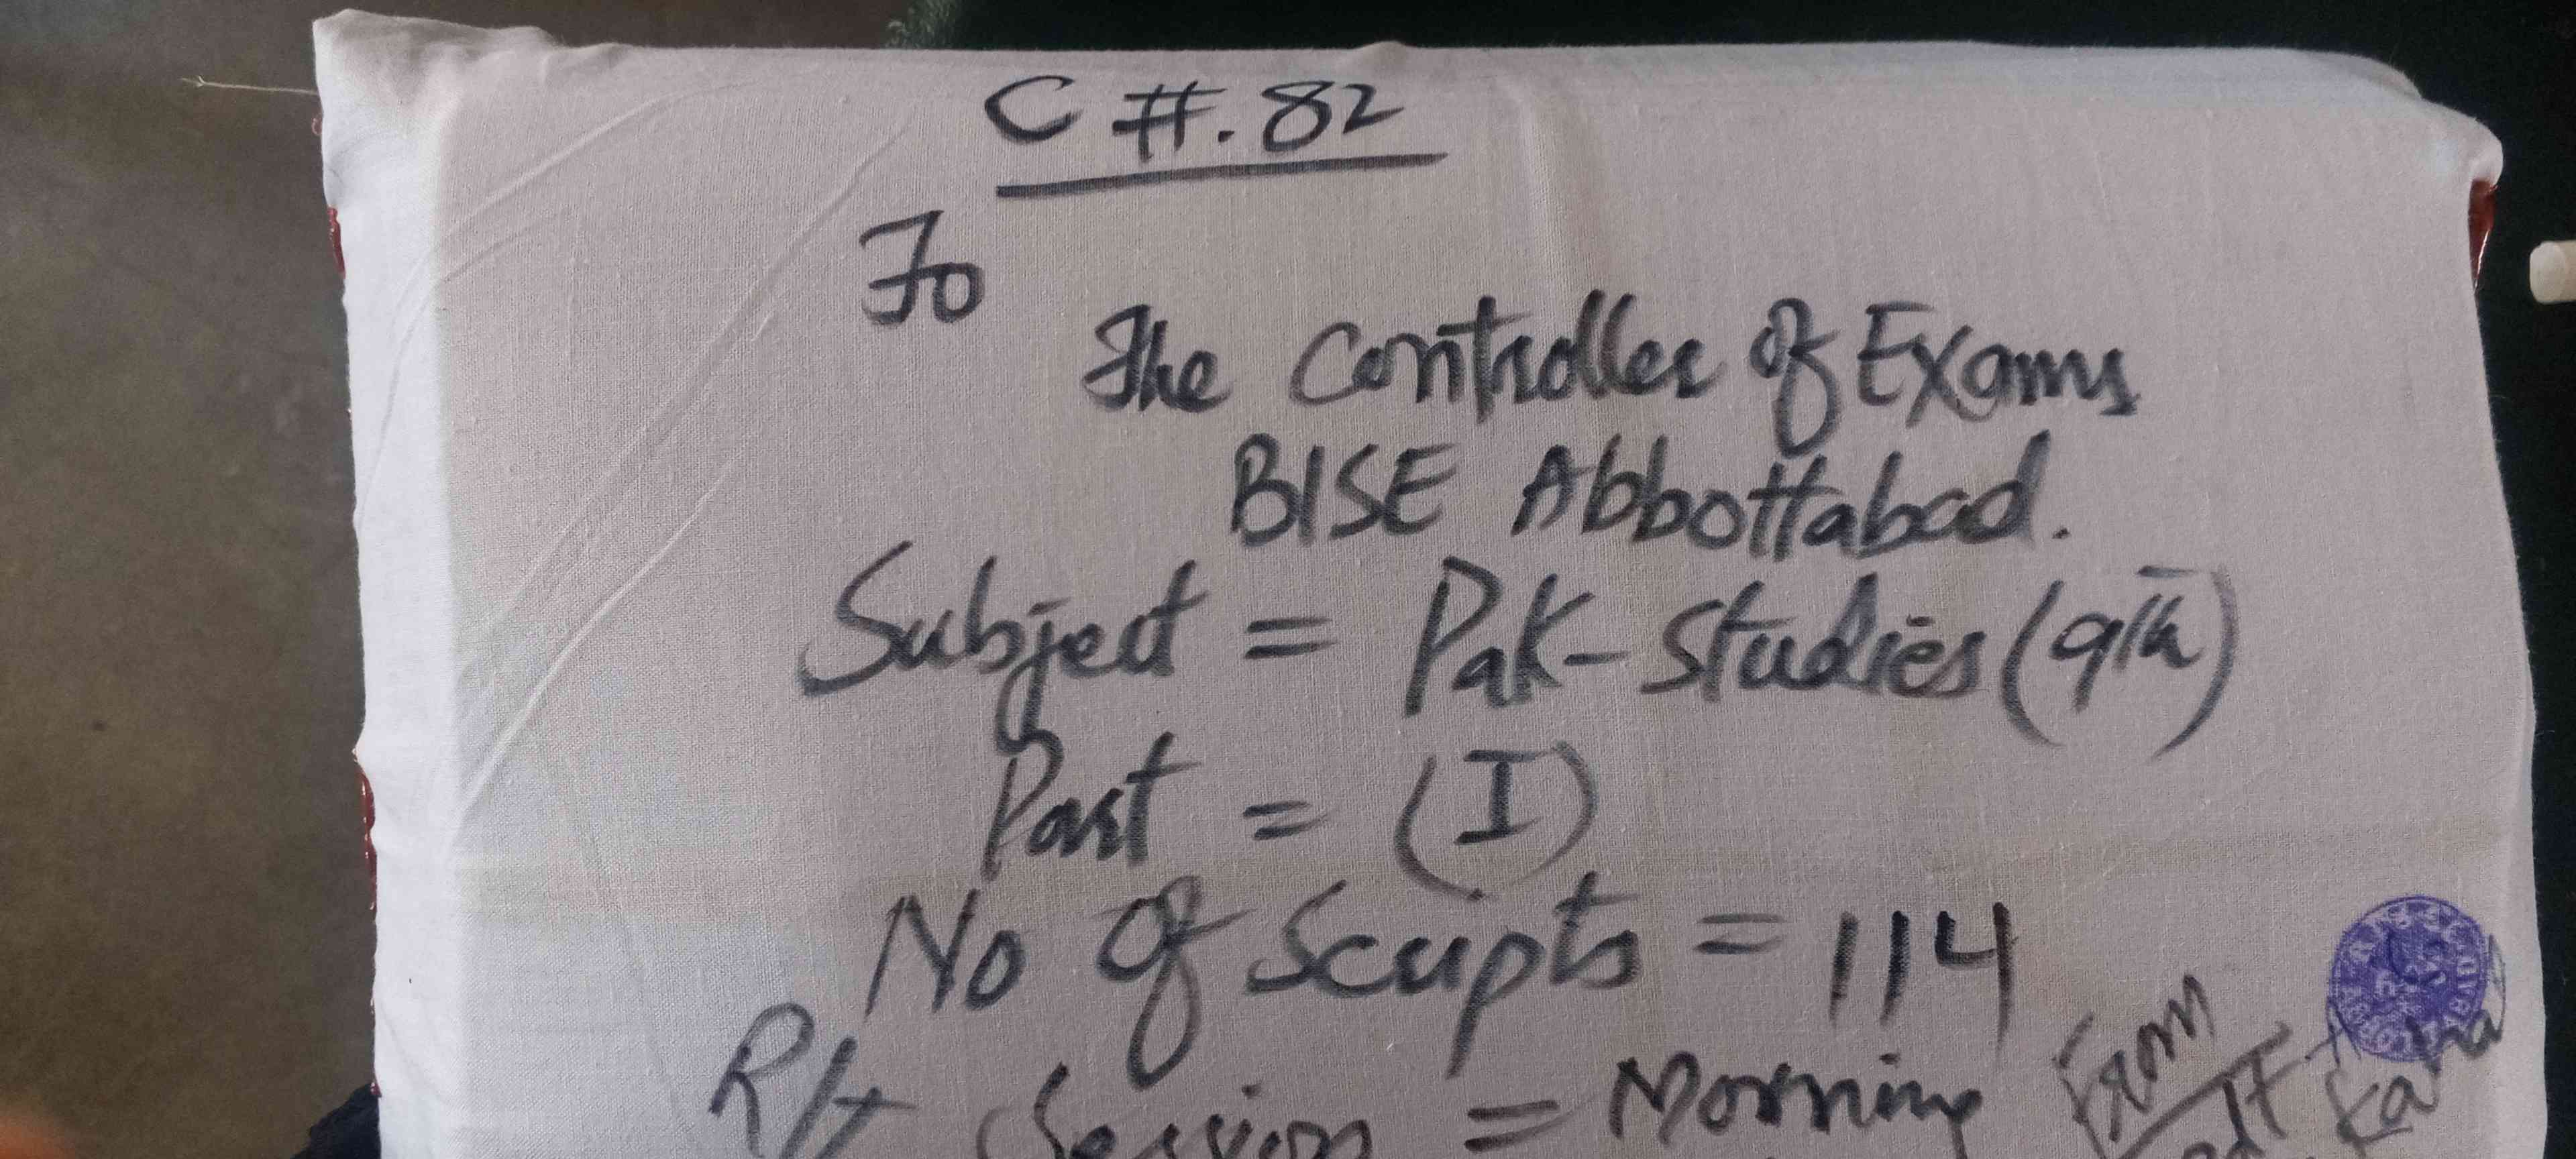 C #. 82
To
The Controller of Exams
BISE Abbottabad.
Subject = Pak-Studies (9th)
Part = (I)
No of Scripts = 114
Session = Morning
From